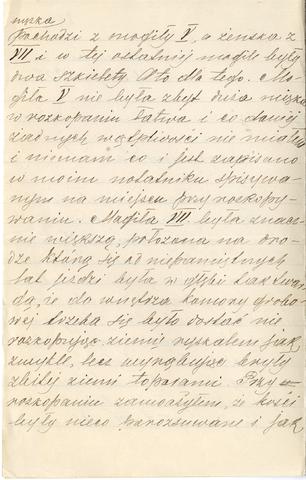 męska
Pochodzi z mogiły V, a żeńska z
VII i w tej ostatniej mogile były
dwa szkielety. Oto dla tego. Mo
giła V nie była zbyt duża miękka
w rozkopaniu łatwa i co do niej
żadnych wątpliwości nie miałem
i niemam co i jest zapisano
w moim notatniku spisywa
nym na miejscu przy rozkopy
waniu. Mogiła VII była znacz
nie większa, położona na dro
dze którą się od niepamiętnych
lat jeździ była w głębi tak twar
da, że do wnętrza komory grobo
wej trzeba się było dostać nie
rozkopując ziemię ryskalem jak
zwykle, lecz wyrąbując bryły
zbitej ziemi toporami. Przy
rozkopaniu zauważyłem, że kości
były nieco porozsuwane i jak